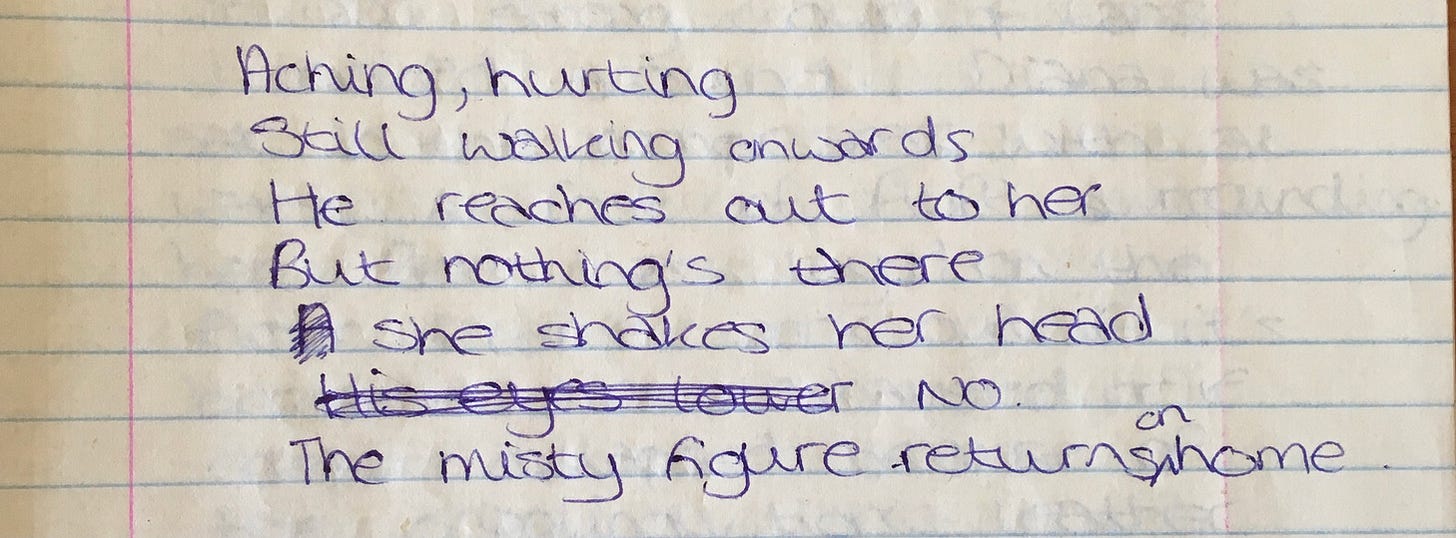 Aching, hurting
Still walking onwards
He reaches out to her
But nothing's there
She shakes her head
His eyes lower NO.
The misty figure returns on home.